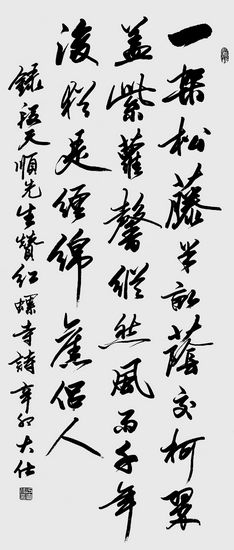 一探松藤半亩荫交柯翠
盖紫萝馨纵然风雨千年
后犹是缠绵旧侣人
录伍天顺先生赞红螺寺诗辛卯大仕